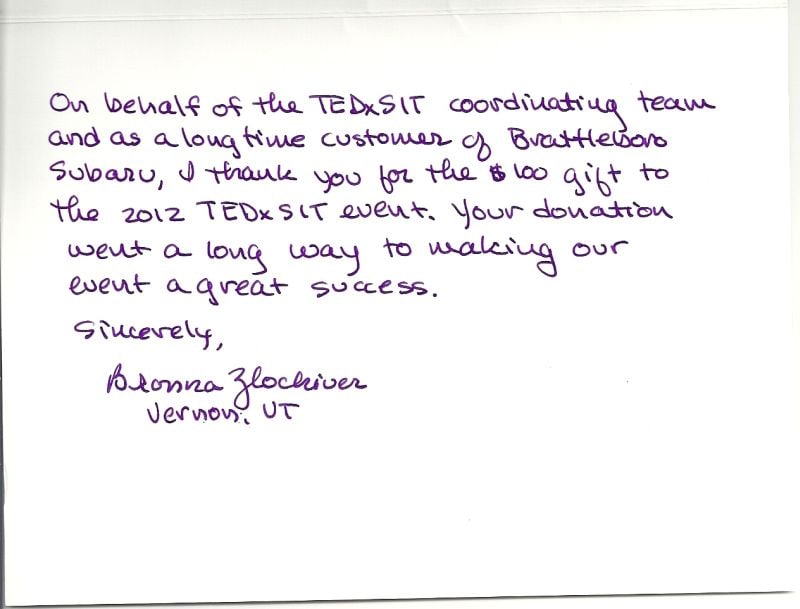 On behalf of the TEDxSIT coordinating team
and as a long time customer of Brattleboro
Subaru, I thank you for the $100 gift to
the 2012 TEDxSIT event. Your donation
went a long way to making our
event a great success.
Sincerely,
Bronna Zlochiver
Vernon, VT